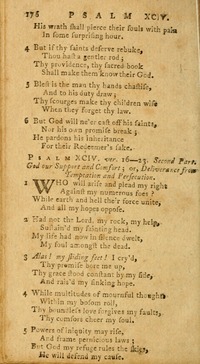 176 PSALM XCIV.
His wrath shall pierce their souls with pain
In some surprising hour.
4 But if thy saints deserve rebuke,
Thou hast a gentler rod;
Thy providence, thy sacred book
Shall make them know their God.
5 Blest is the man thy hands chastise,
And to his duty draw;
Thy scourges make thy children wise
When they forget thy law.
6 But God will ne'er cast off his saints,
Nor his own promise break;
He pardons his inheritance
For their Redeemer's sake.
PSALM XCIV. ver. 16—23. Second Part.
God our Support and Comfort; or, Deliverance from
Temptation and Persecution.
1 WHO will arise and plead my right
Against my numerous foes?
While earth and hell their force unite,
And all my hopes oppose.
2 Had not the Lord, my rock, my help,
Sustain'd my fainting head,
My life had now in silence dwelt,
My soul amongst the dead.
3 Alas! my sliding feet! I cry'd,
Thy promise bore me up,
Thy grace stood constant by my side,
And rais'd my sinking hope.
4 While multitudes of mournful thoughts
Within my bosom roll,
Thy boundless love forgives my faults,
Thy comforts cheer my soul.
5 Powers of iniquity may rise,
And frame pernicious laws;
But God my refuge rules the skies,
He will defend my cause.